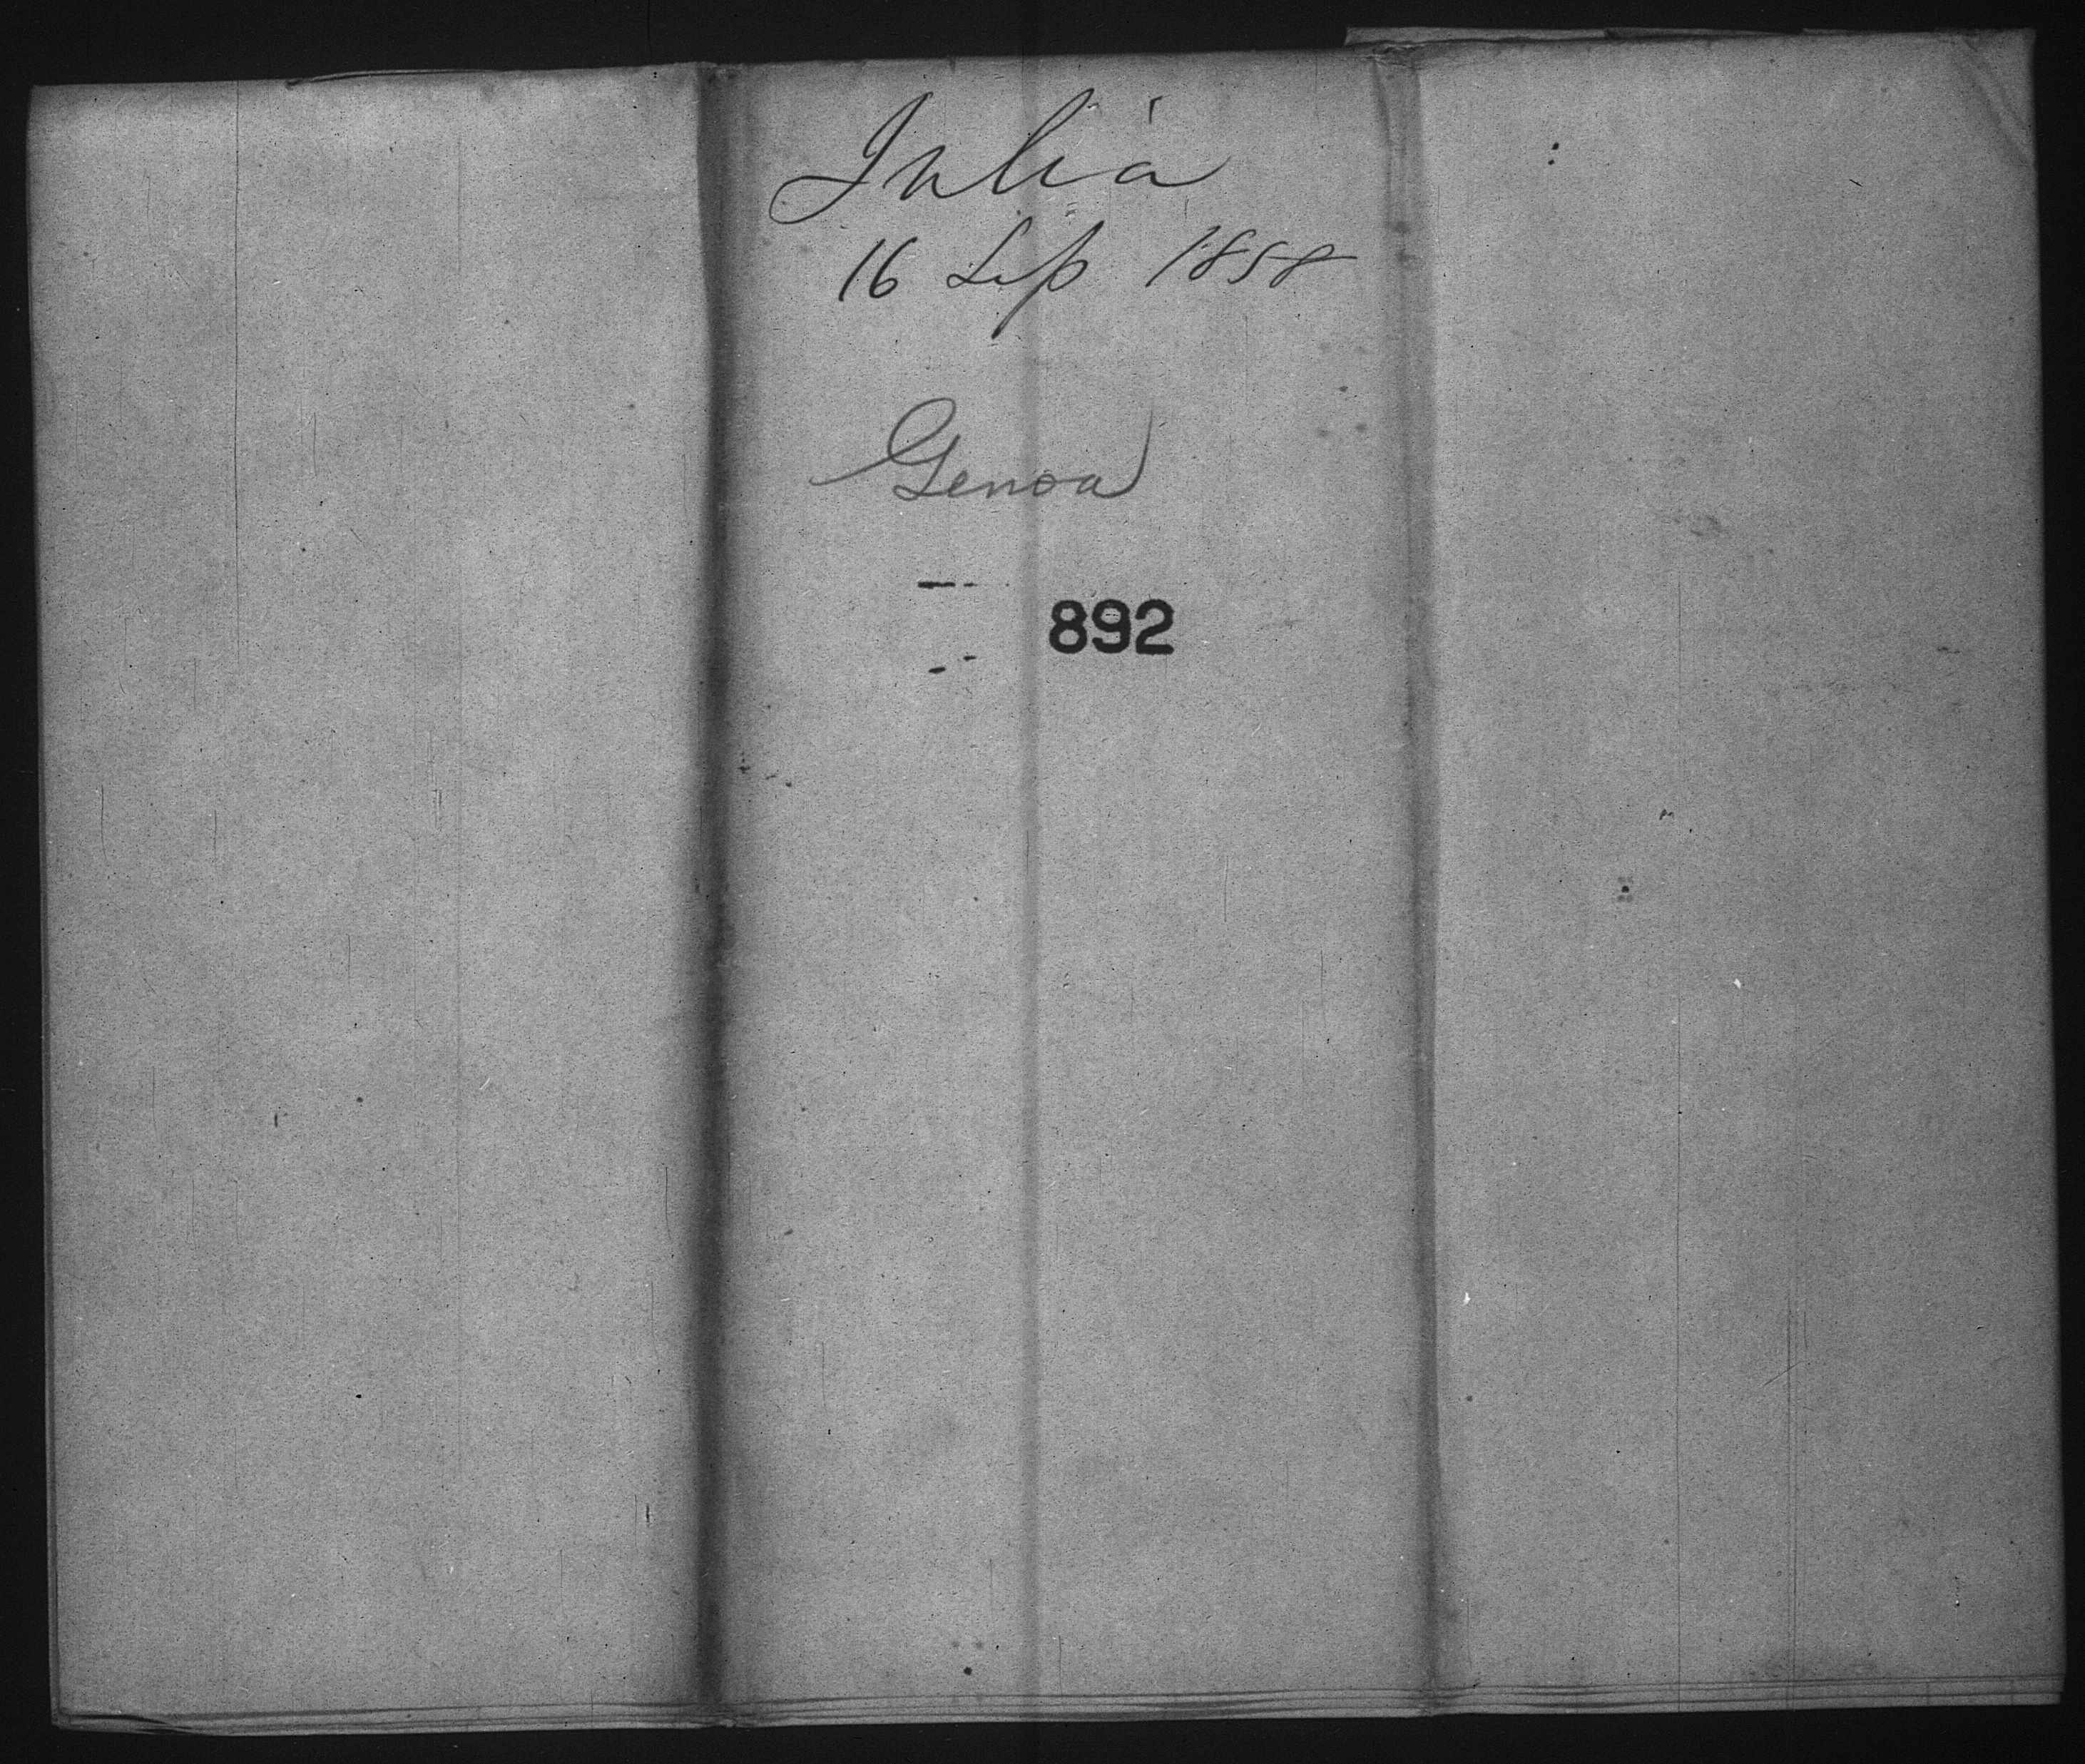 Julia
16 Sep 1858
Genoa
892